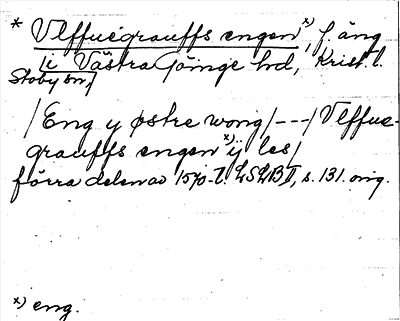 * Vlffuégrauffs engen x), f. äng
[i Västra Göinge hd, Krist. l.
Stoby sn,]
/Eng y østre wong/---/Vlffue-
grauffs engen x) ÿ les/
förra delen av 1570-t. LSLB II, s. 131. orig.
x) eng.